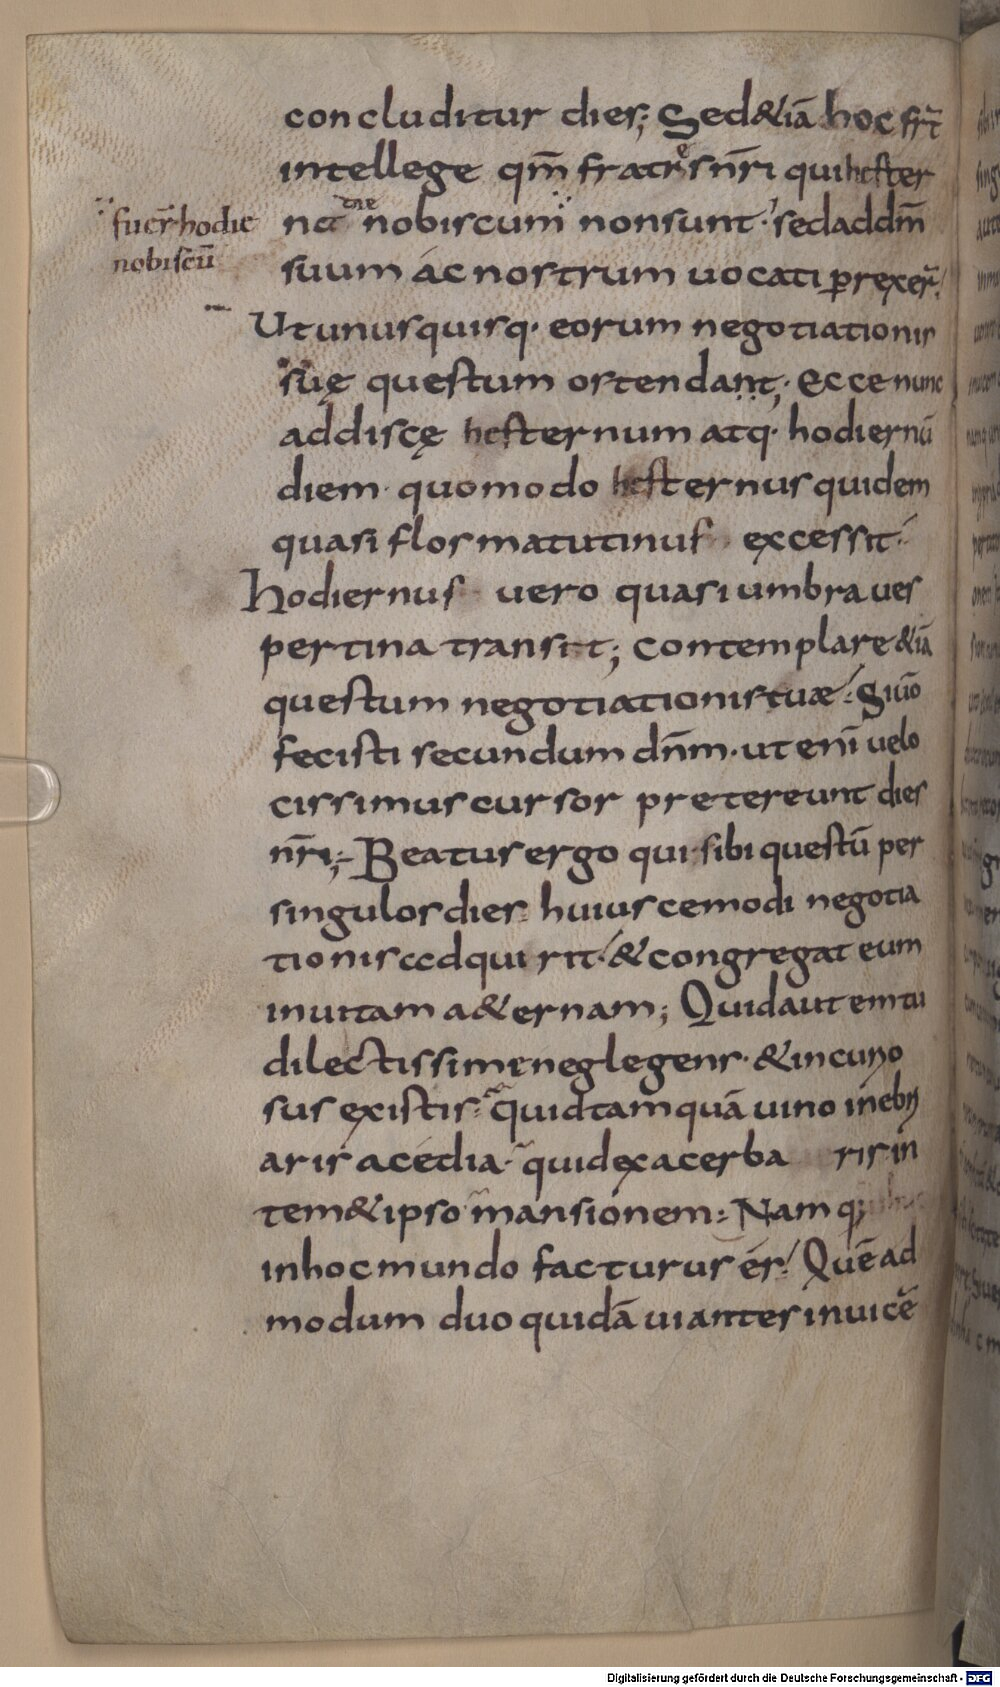 concluditur dies; Sed &iā hoc frt̄
intellege qm̄ fratres nr̄i qui hester
na die nobiscum nonsunt. sedaddm̄
fuer̄ hodie
nobiscū
suum ác nostrum uocati prexer̄.
Ut unusquisq. eorum negotiationis
suę questum ostendant; Ecce nunc
addiscę hesternum atq. hodiernū
diem. quomodo hesternus quidem
quasi flos matutinus excessit.
Hodiernus uero quasi umbra ues
pertina transiit; Contemplare &iā
questum negotiationis tuæ. Si uō
fecisti secundum dn̄m. ut enī uelo
cissimus cursor pretereunt dies
nr̄i; Beatus ergo qui sibi questū per
singulos dies huiuscemodi negotia
tionis adquirit. & congregat eum
in uitam a&ernam; Quid autem tu
dilectissimę neglegens. & incurio
sus existis. quid tamquā uino inebri
aris acédia. quid exacerba ris in
tem&ipso mansionem. Nam q;
in hoc mundo facturus és. Quēad
modum duo quidā uiantes inuicē
Digitalisierung gefördert durch die Deutsche Forschungsgemeinschaft - DFG